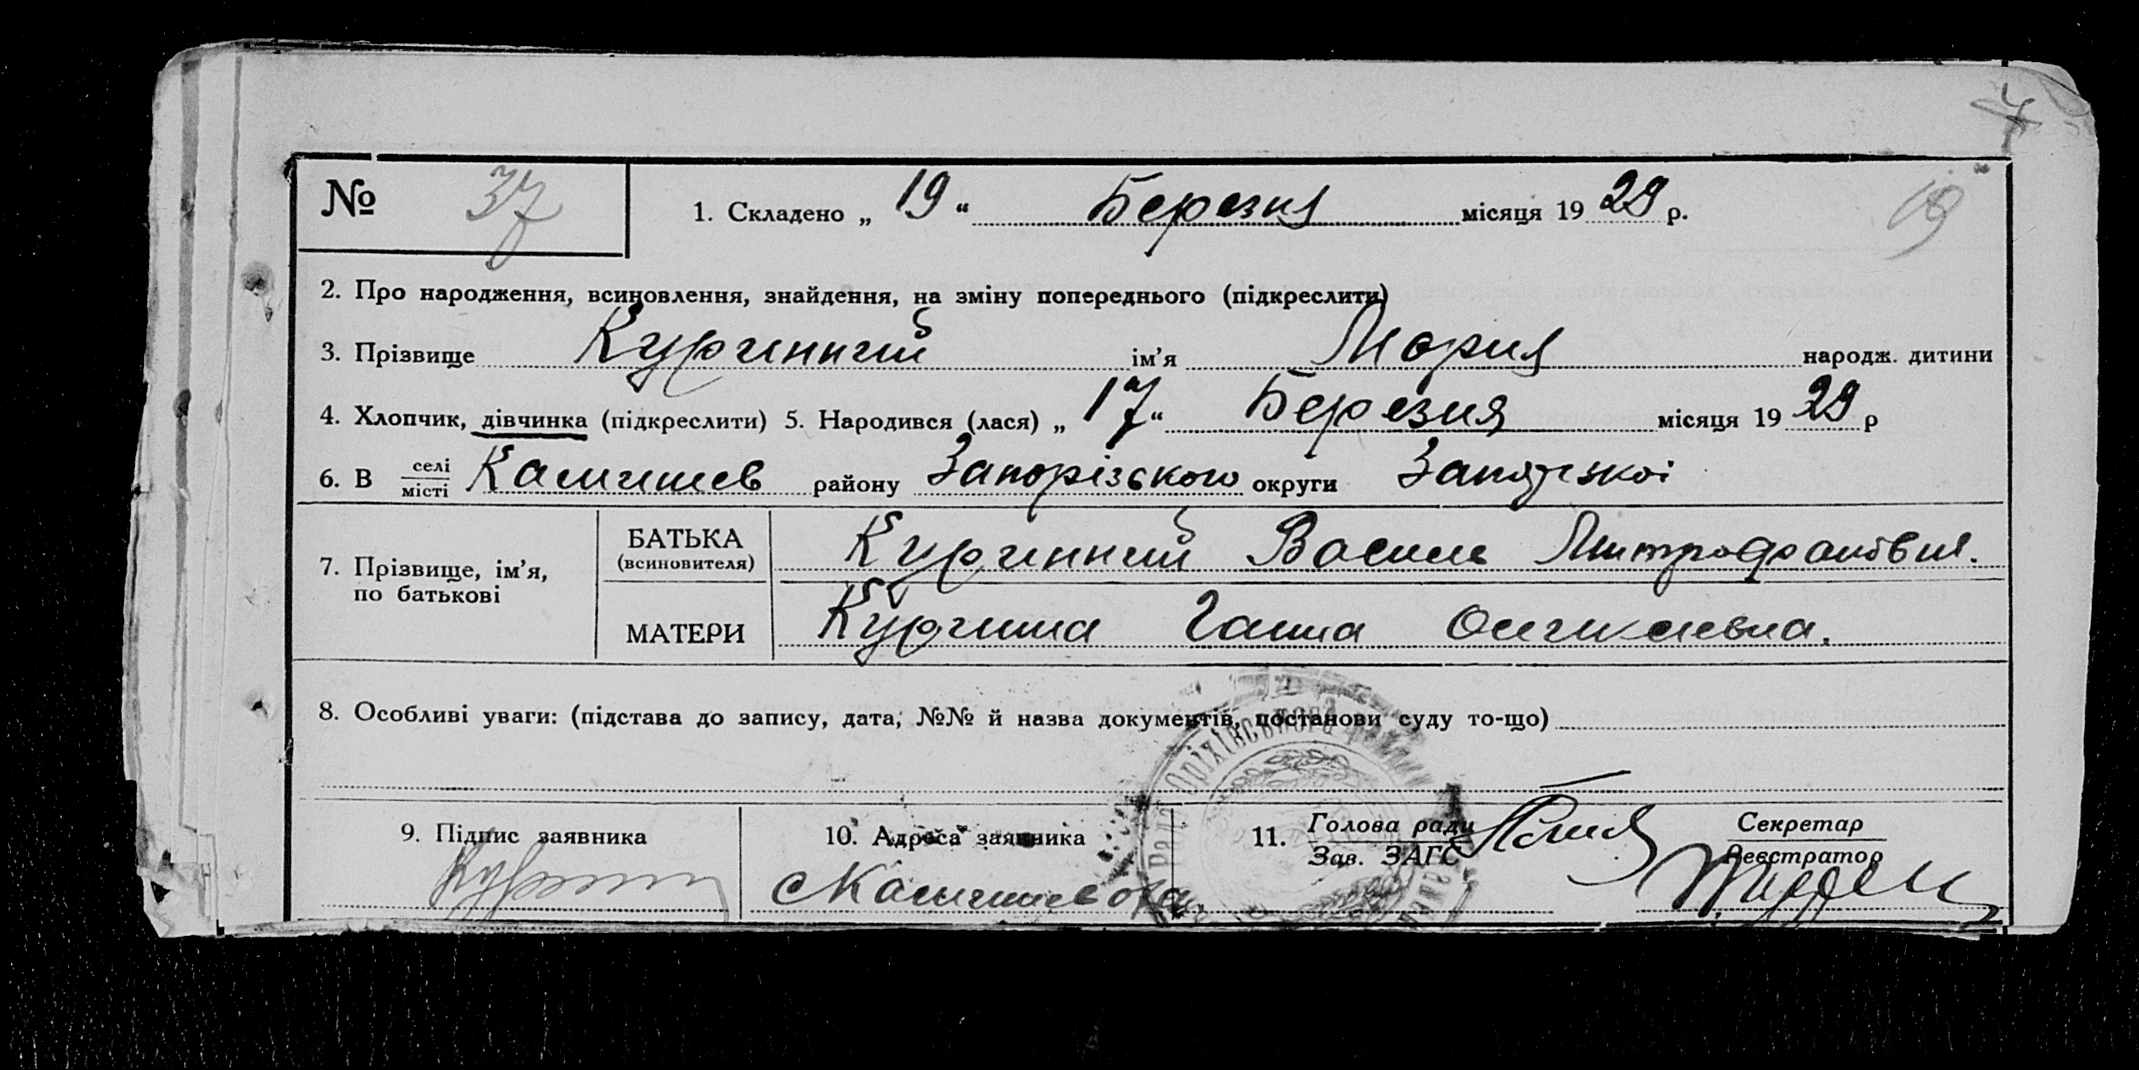 4
№ 37 1. Складено „ 19 “ Березня місяця 1929 р. 19
2. Про народження, всиновлення, знайдення, на зміну попереднього (підкреслити)
3. Прізвище Куринний ім’я Мария народж. дитини
4. Хлопчик, дівчинка (підкреслити) 5. Народився (лася) „ 17 “ Березня місяця 1929 р
6. В селі/місті Камишев району Запорізького округи
7. Прізвище, ім’я, по батькові
БАТЬКА (всиновителя) Куринний Василь Митрофанович.
МАТЕРИ Курина Ганна
8. Особливі уваги: (підстава до запису, дата, №№ й назва документів, постанови суду то-що)
Оріхівського
9. Підпис заявника 10. Адреса заявника 11. Голова ради/Зав. ЗАГС Секретар/Реєстратор